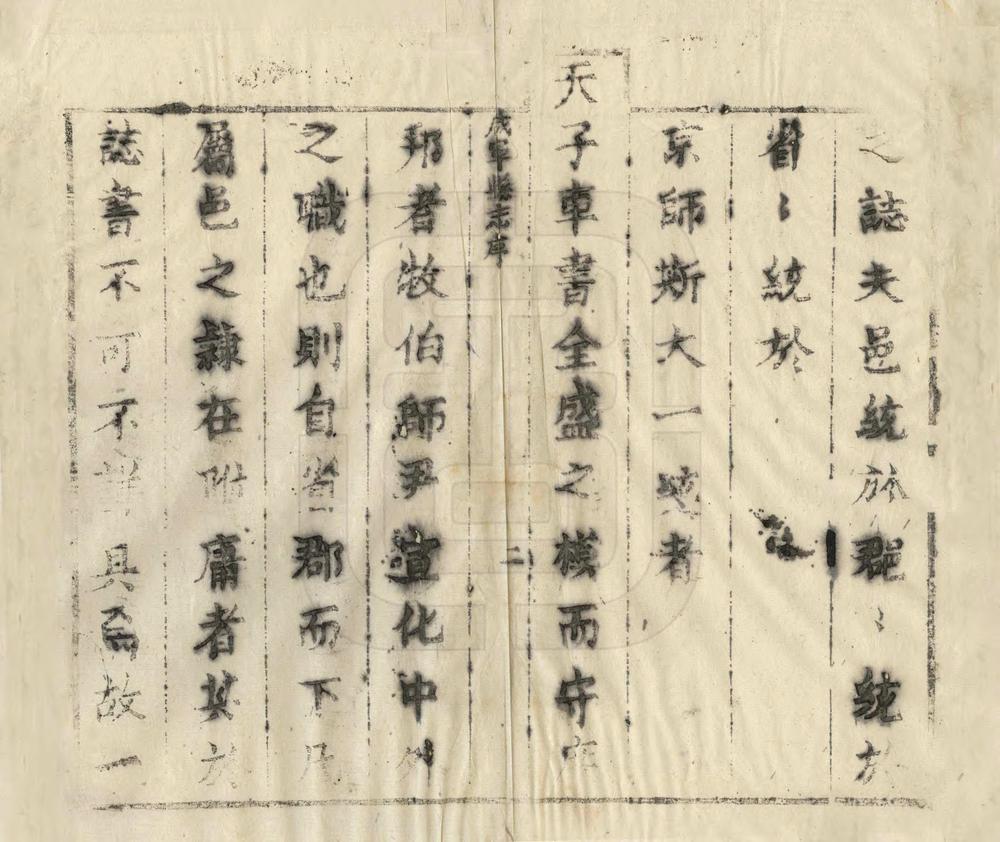 之誌夫邑統於郡〻統於
省〻統於
京師斯大一統者
天子車書全盛之模而守在
茂軍縣志序
二
邦者牧伯師尹宣化中外
之職也則自省郡而下凡
屬邑之隸在附庸者其於
誌書不可不詳具而故一